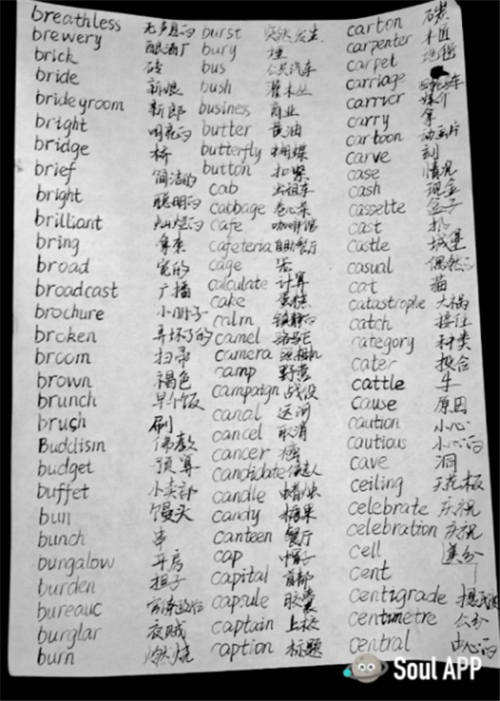 breathless 无声息的
brewery 酿酒厂
brick 砖
bride 新娘
brideyroom 新郎
bright 明亮的
bridge 桥
brief 简洁的
bright 聪明的
brilliant 灿烂的
bring 拿来
broad 宽的
broadcast 广播
brochure 小册子
broken 弄坏了的
broom 扫帚
brown 褐色
brunch 早午饭
brush 刷
Buddism 佛教
budget 预算
buffet 小卖部
bun 馒头
bunch 串
bungalow 平房
burden 担子
bureauc
burglar 夜贼
burn 燃烧
burst 突然发生
bury 埋
bus 公共汽车
bush 灌木丛
business 商业
butter 黄油
butterfly 蝴蝶
button 扣紧
cab 出租车
cabbage 卷心菜
cafe 咖啡馆
cafeteria 自助餐厅
cage 笼
calculate 计算
cake 蛋糕
calm 镇静的
camel 骆驼
camera 照相机
camp 野营
campaign 战役
canal 运河
cancel 取消
cancer 癌
candidate 候选人
candle 蜡烛
candy 糖果
canteen 餐厅
cap 帽子
capital 首都
capsule 胶囊
captain 上校
caption 标题
carton
carpenter 木匠
carpet 地毯
carriage
carrier 媒介
carry 拿
cartoon 动画片
carve 刻
case 情况
cash 现金
cassette 盒子
cast 扔
castle 城堡
casual 偶然的
cat 猫
catastrophe 大祸
catch 接住
category 种类
cater 投合
cattle 牛
cause 原因
caution 小心
cautious 小心的
cave 洞
ceiling 天花板
celebrate 庆祝
celebration 庆祝
cell
cent
centigrade
centimetre 公分
central 中心的
Soul APP